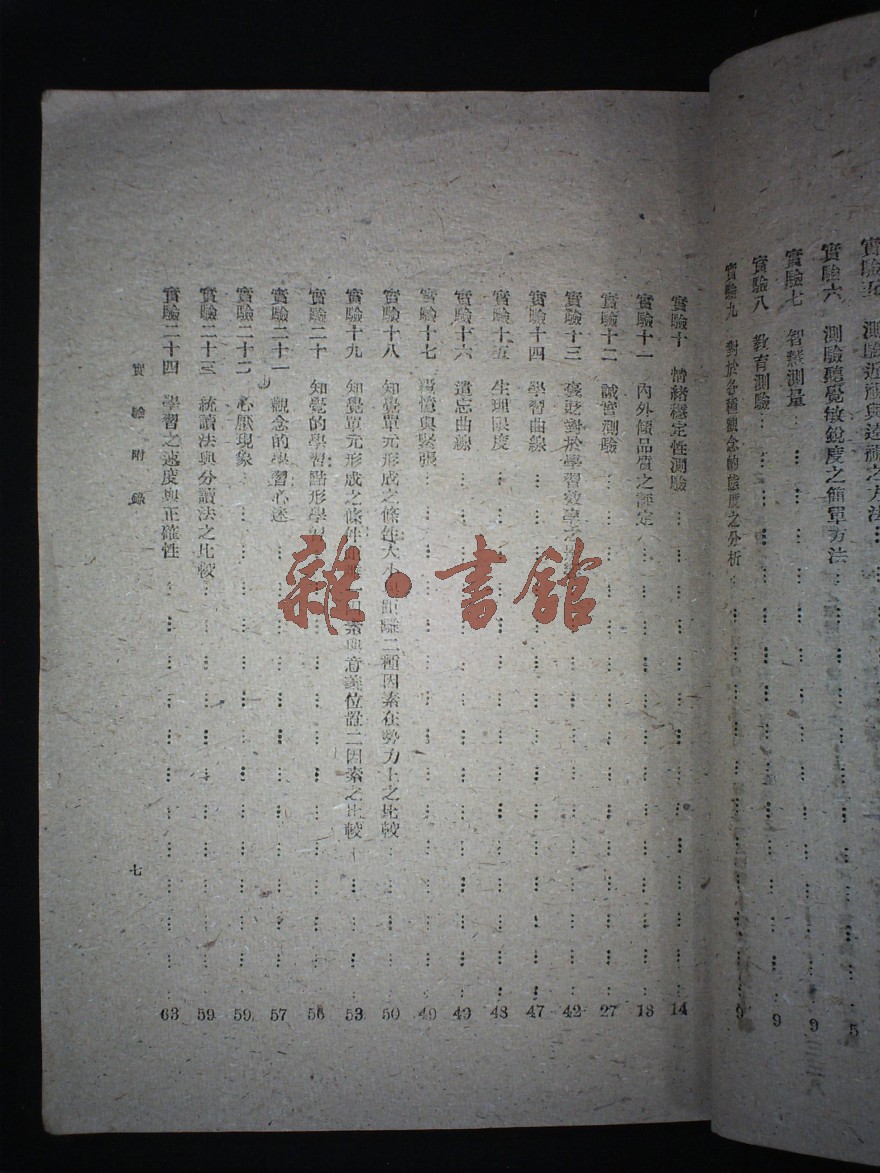 實驗五 測驗近視與遠視之方法 5
實驗六 測驗聽覺敏銳度之簡單方法 9
實驗七 智慧測量 9
實驗八 教育測驗 9
實驗九 對於各種觀念的態度之分析 9
實驗十 情緒穩定性測驗 14
實驗十一 內外傾品質之評定 18
實驗十二 誠實測驗 27
實驗十三 對於學習效率之 42
實驗十四 學習曲線 47
實驗十五 生理限度 48
實驗十六 遺忘曲線 49
實驗十七 記憶與緊張 49
實驗十八 知覺單元形成之條件大小 距離二種因素在勢力上之比較 50
實驗十九 知覺單元形成之條件 因素與意義位置二因素之比較 53
實驗二十 知覺的學習點形學習 56
實驗二十一 觀念的學習心迷 57
實驗二十二 心壓現象 59
實驗二十三 統讀法與分讀法之比較 59
實驗二十四 學習之速度與正確性 63
實驗附錄
七
雜·書館